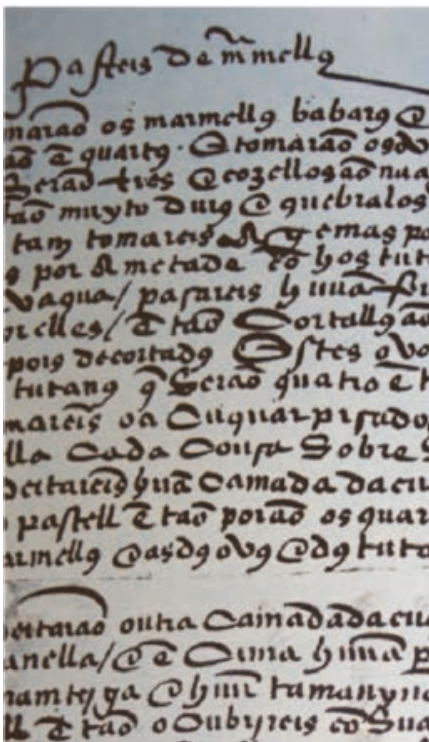 Pasteis de mmellos
marão os marmellos babaros e
ão e quartos. e tomarão os du
serão três e cozellos ão nua
tão muyto duros e quebralos
tam tomareis as gemas po
s por a metade cõ hos tuta
vaqua/ pasareis huũa
relles/ e tão cortallos ão
pois decortados estes ovo
tutanos q serão quatro e t
mareis o acuquar pisado
lla cada cousa sobre s
deitareis huã camada dacu
pastell e tão porão os quar
armellos e as dos ovos e dos tuta
deitarão outra camada dacu
anella/ e e cima huũa p
namteyga e huũ tamanyno
ll e tão o cubrireis cõ sua